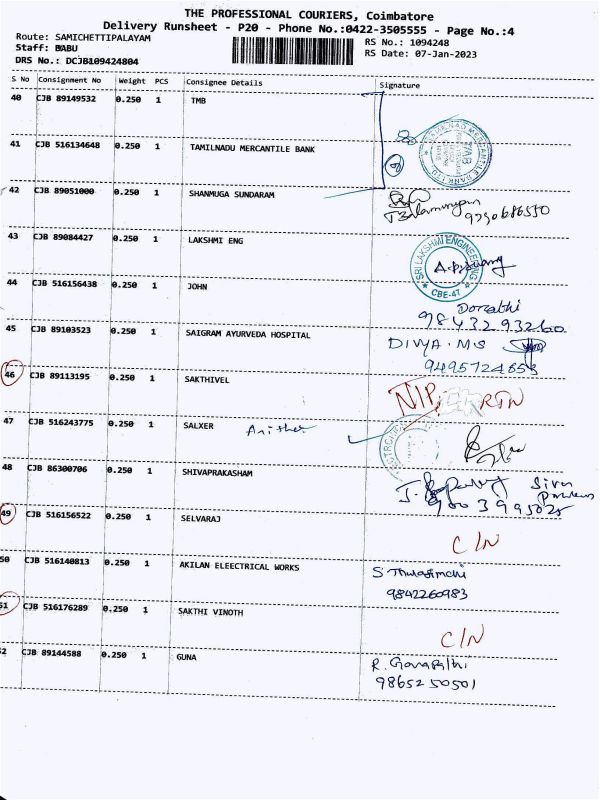 THE PROFESSIONAL COURIERS, Coimbatore
Delivery Runsheet - P20 - Phone No.:0422-3505555 - Page No.:4
Route: SAMICHETTIPALAYAM
Staff: BABU
DRS No.: DCJB109424804
RS No.: 1094248
RS Date: 07-Jan-2023
S No Consignment No Weight PCS Consignee Details Signature
40 CJB 89149532 0.250 1 TMB
41 CJB 516134648 0.250 1 TAMILNADU MERCANTILE BANK
42 CJB 89051000 0.250 1 SHANMUGA SUNDARAM
9790686550
43 CJB 89084427 0.250 1 LAKSHMI ENG
SRI LAKSHMI ENGINEERING
CBE-47
44 CJB 516156438 0.250 1 JOHN
9843293260
45 CJB 89103523 0.250 1 SAIGRAM AYURVEDA HOSPITAL
DIVYA.MS
9495724653
46 CJB 89113195 0.250 1 SAKTHIVEL
NIP RTN
47 CJB 516243775 0.250 1 SALXER
48 CJB 86300706 0.250 1 SHIVAPRAKASHAM
49 CJB 516156522 0.250 1 SELVARAJ
C/N
50 CJB 516140813 0.250 1 AKILAN ELEECTRICAL WORKS
9842260983
51 CJB 516176289 0.250 1 SAKTHI VINOTH
C/N
2 CJB 89144588 0.250 1 GUNA
R. Ganapathi
9865250501